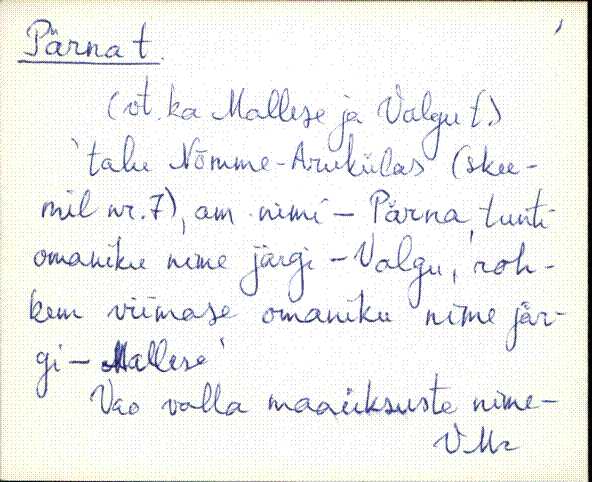 Pärna t.
(vt. ka Mallese ja Valgu t.)
'talu Nõmme-Arukülas (skee-
mil nr. 7), am. nimi - Pärna, tunti
omaniku nime järgi - Valgu, roh-
kem viimase omaniku nime jär-
gi - Mallese'
Vao valla maaüksuste nime-
VMr